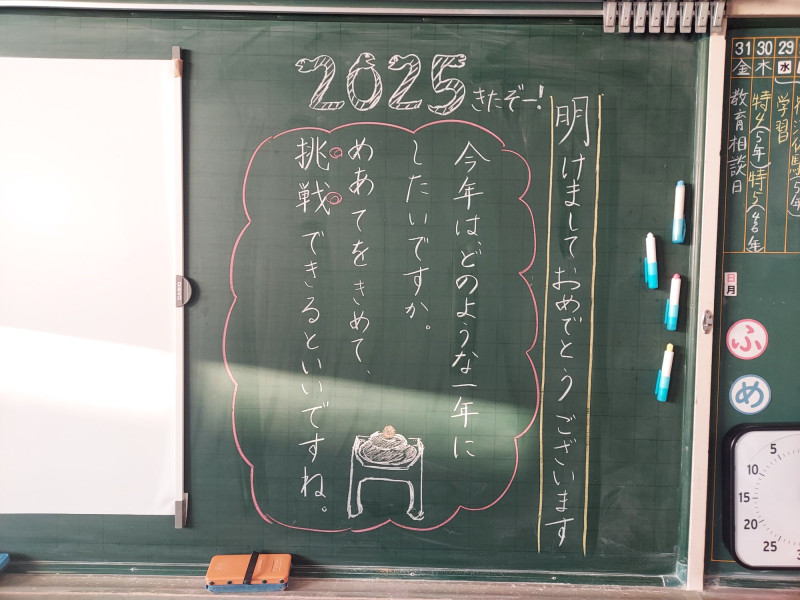 2025きたぞー!
明けましておめでとうございます
今年は、どのような一年に
したいですか。
めあてをきめて、
挑戦できるといいですね。
31 30 29
金 木 水
教育相談日
学習
日
月
ふ
め
5
10
15
20
25